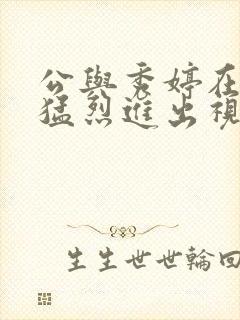 公與秀婷在
猛烈進出視
生生世世輪回